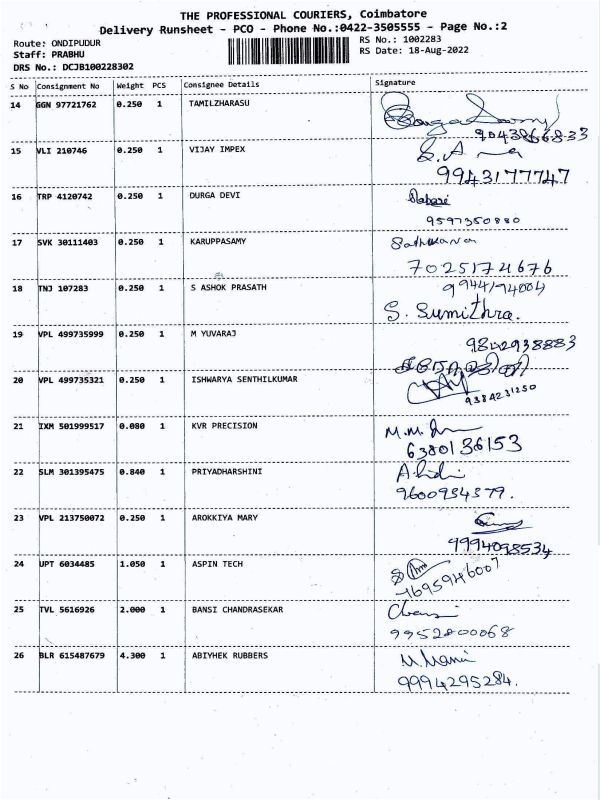 THE PROFESSIONAL COURIERS, Coimbatore
Delivery Runsheet - PCO - Phone No.:0422-3505555 - Page No.:2
Route: ONDIPUDUR
RS No.: 1002283
Staff: PRABHU
RS Date: 18-Aug-2022
DRS No.: DCJB100228302
S No Consignment No Weight PCS Consignee Details Signature
14 GGN 97721762 0.250 1 TAMILZHARASU
9043866833
15 VLI 210746 0.250 1 VIJAY IMPEX
9943177747
16 TRP 4120742 0.250 1 DURGA DEVI
9597350880
17 SVK 30111403 0.250 1 KARUPPASAMY
7025174676
18 TNJ 107283 0.250 1 S ASHOK PRASATH
S. Sumithra.
19 VPL 499735999 0.250 1 M YUVARAJ
9842938883
20 VPL 499735321 0.250 1 ISHWARYA SENTHILKUMAR
9384231250
21 IXM 501999517 0.080 1 KVR PRECISION
6380136153
22 SLM 301395475 0.840 1 PRIYADHARSHINI
9600934379.
23 VPL 213750072 0.250 1 AROKKIYA MARY
9994098534
24 UPT 6034485 1.050 1 ASPIN TECH
7695946007
25 TVL 5616926 2.000 1 BANSI CHANDRASEKAR
9952800068
26 BLR 615487679 4.300 1 ABIYHEK RUBBERS
M. Mani
9994295284.